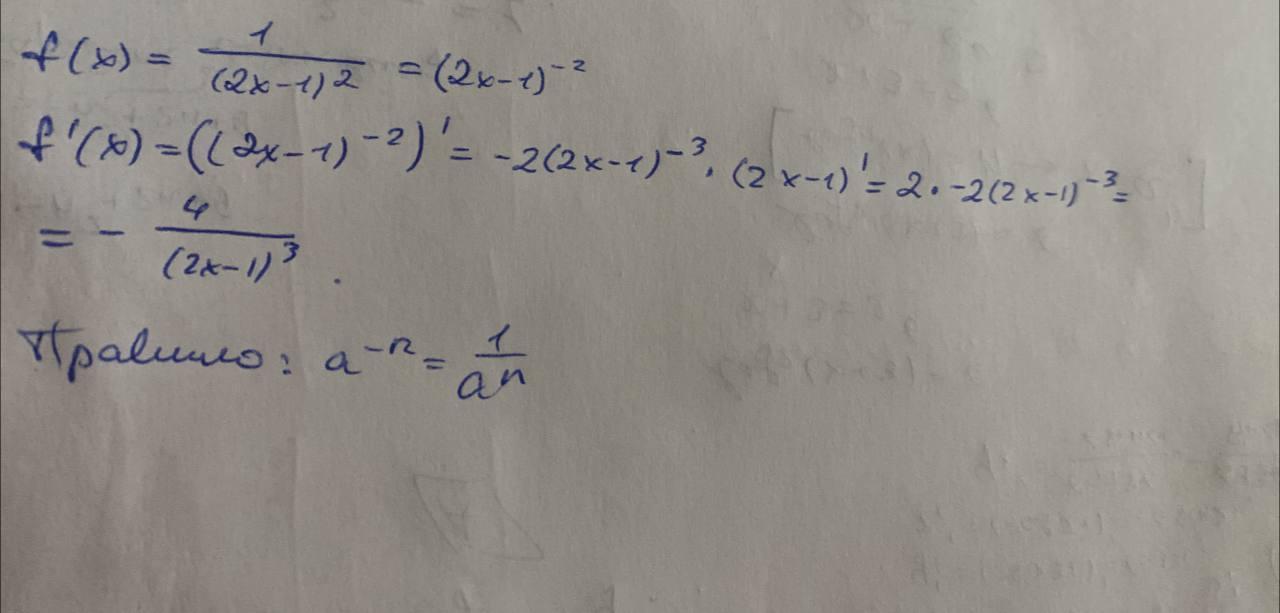 f(x) = 1/(2x-1)² = (2x-1)⁻²
f'(x) = ((2x-1)⁻²)' = -2(2x-1)⁻³ · (2x-1)' = 2 · -2(2x-1)⁻³ =
= - 4/(2x-1)³ .
Правило: a⁻ⁿ = 1/aⁿ